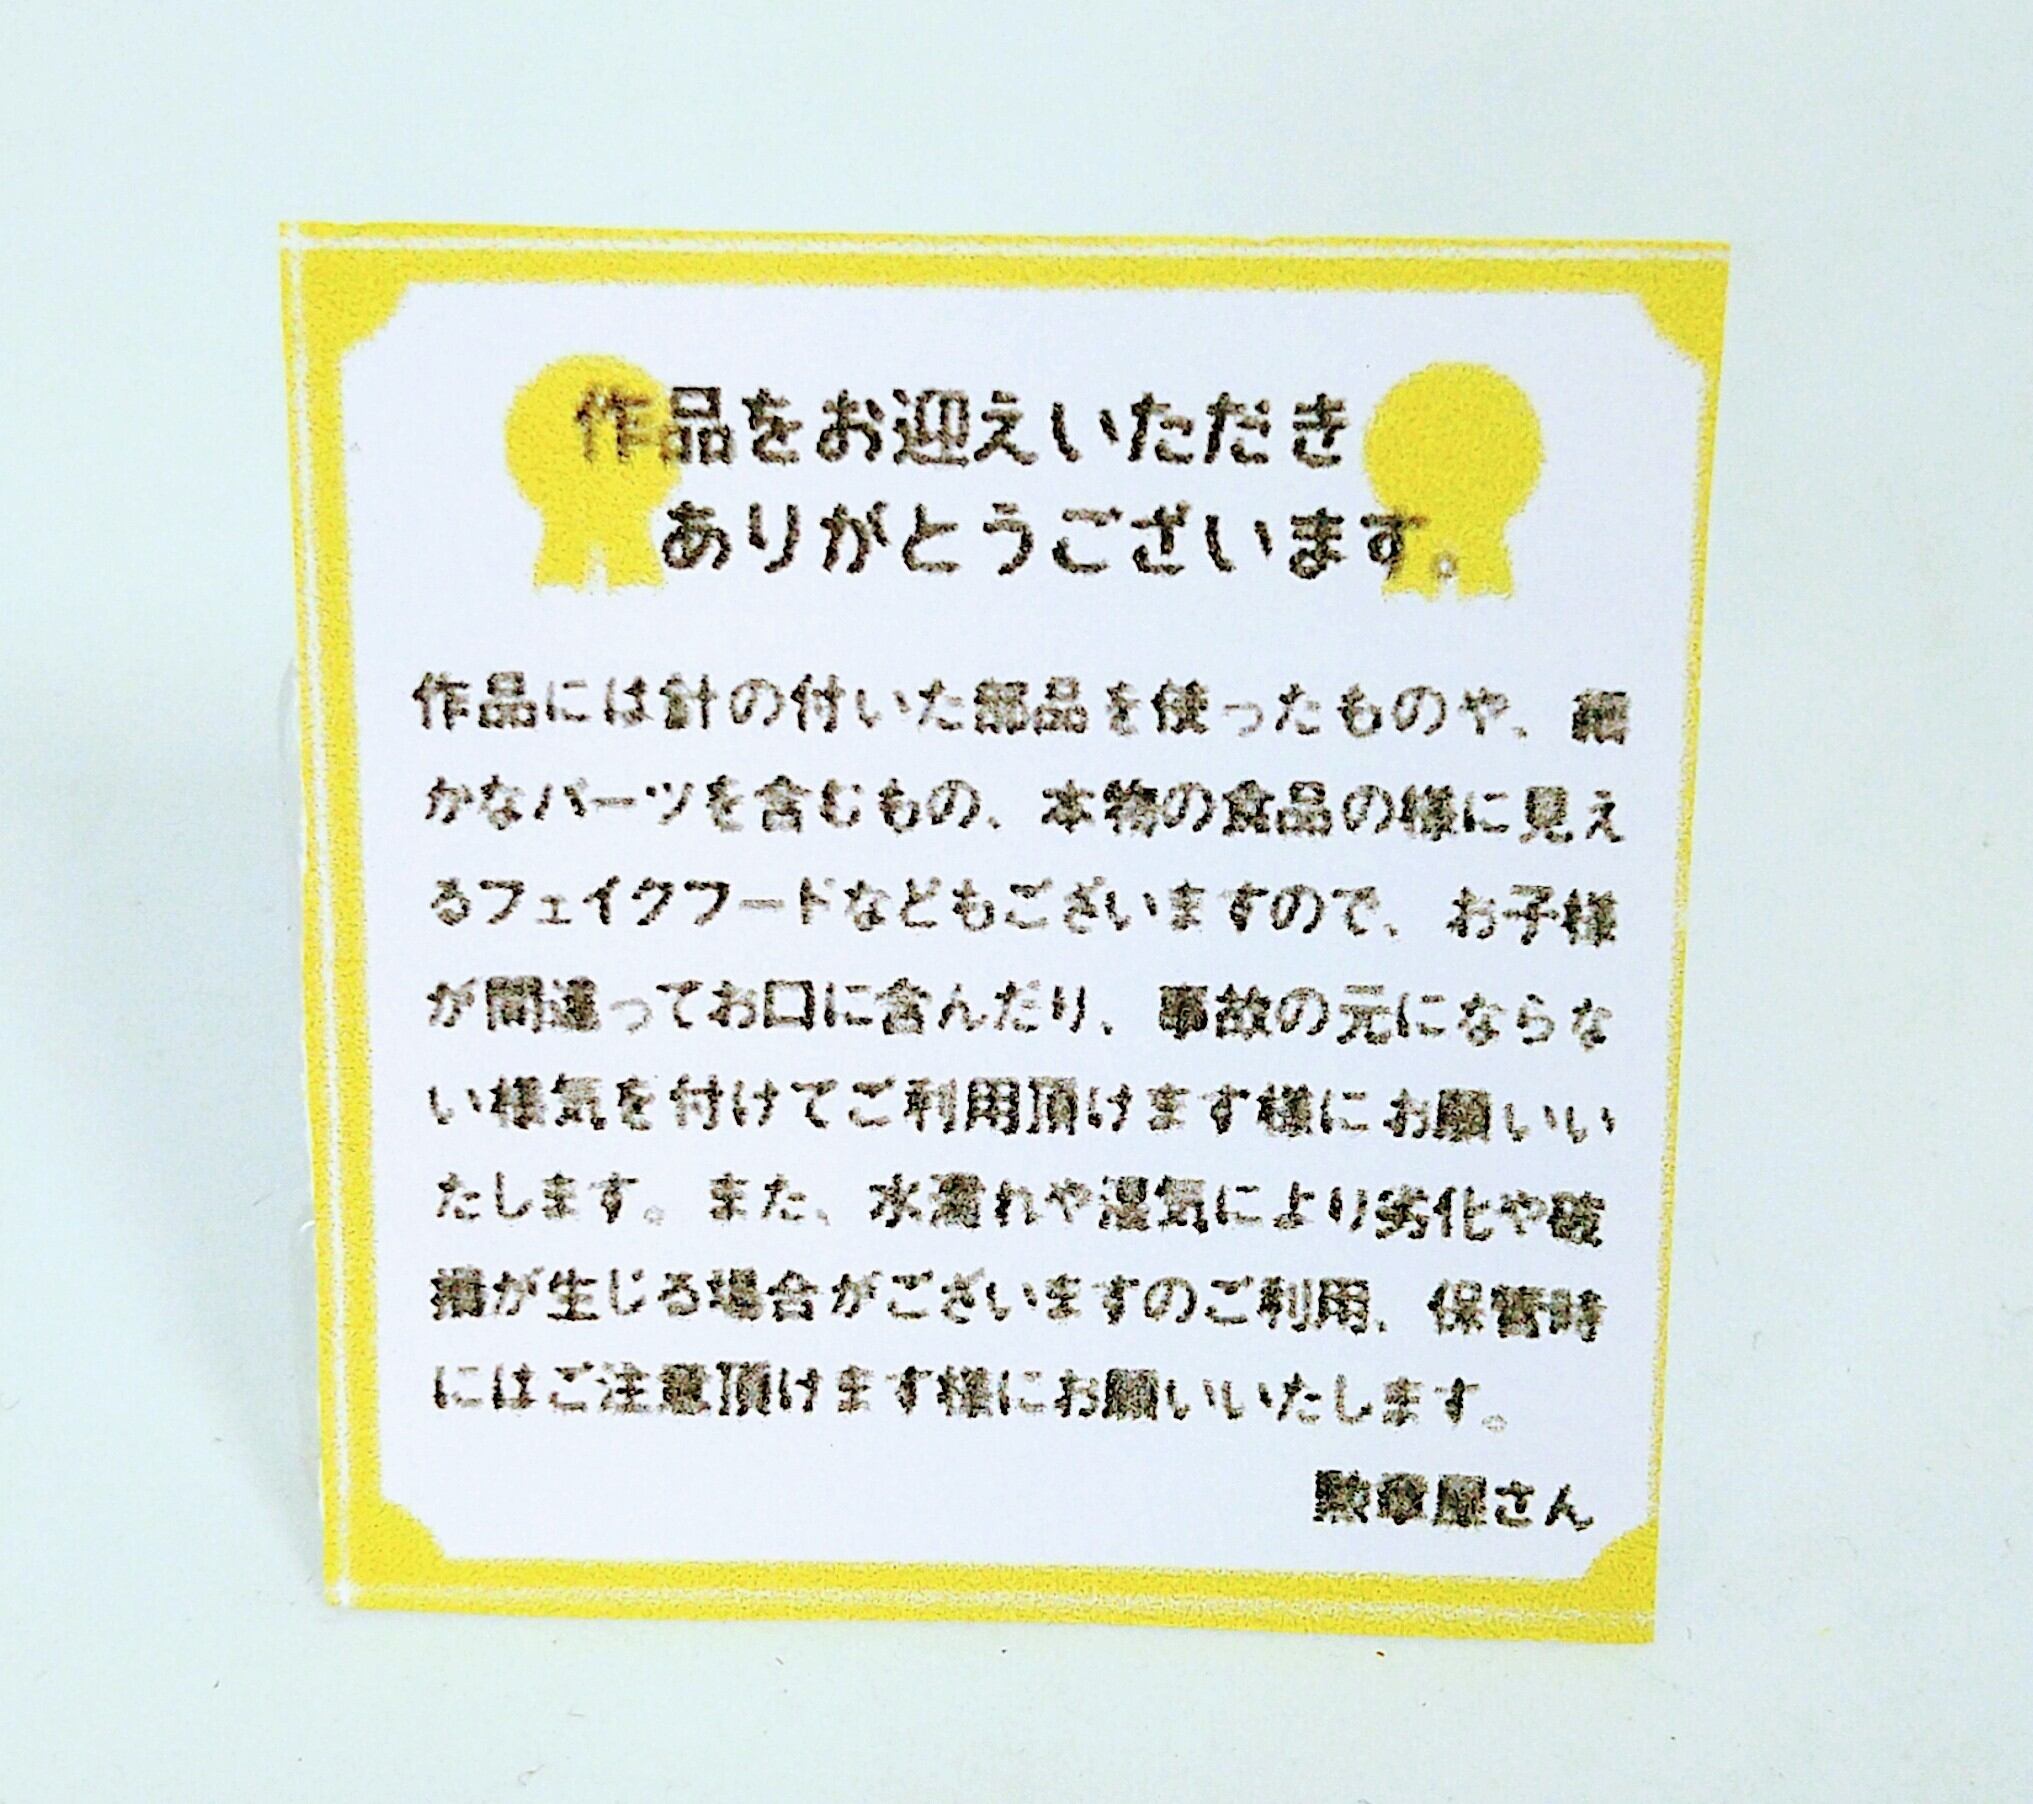 作品をお迎えいただき
ありがとうございます。
作品には針の付いた部品を使ったものや、細
かなパーツを含むもの、本物の食品の様に見え
るフェイクフードなどもございますので、お子様
が間違ってお口に含んだり、事故の元にならな
い様気を付けてご利用頂けます様にお願いい
たします。また、水濡れや湿気により劣化や破
損が生じる場合がございますのご利用、保管時
にはご注意頂けます様にお願いいたします。
屋さん